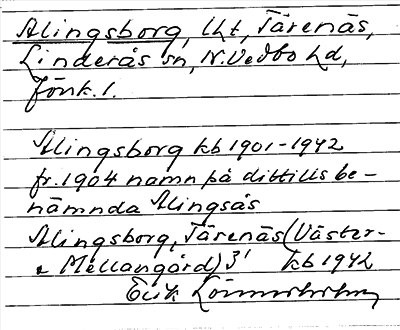 Alingsborg, lht, Tärenäs,
Linderås sn, N. Vedbo hd,
Jönk. l.
Alingsborg kb 1901-1942
fr. 1904 namn på dittills be-
nämnda Alingsås
Alingsborg, Tärenäs (Väster-
o Mellangård) 3¹ kb 1942
Erik